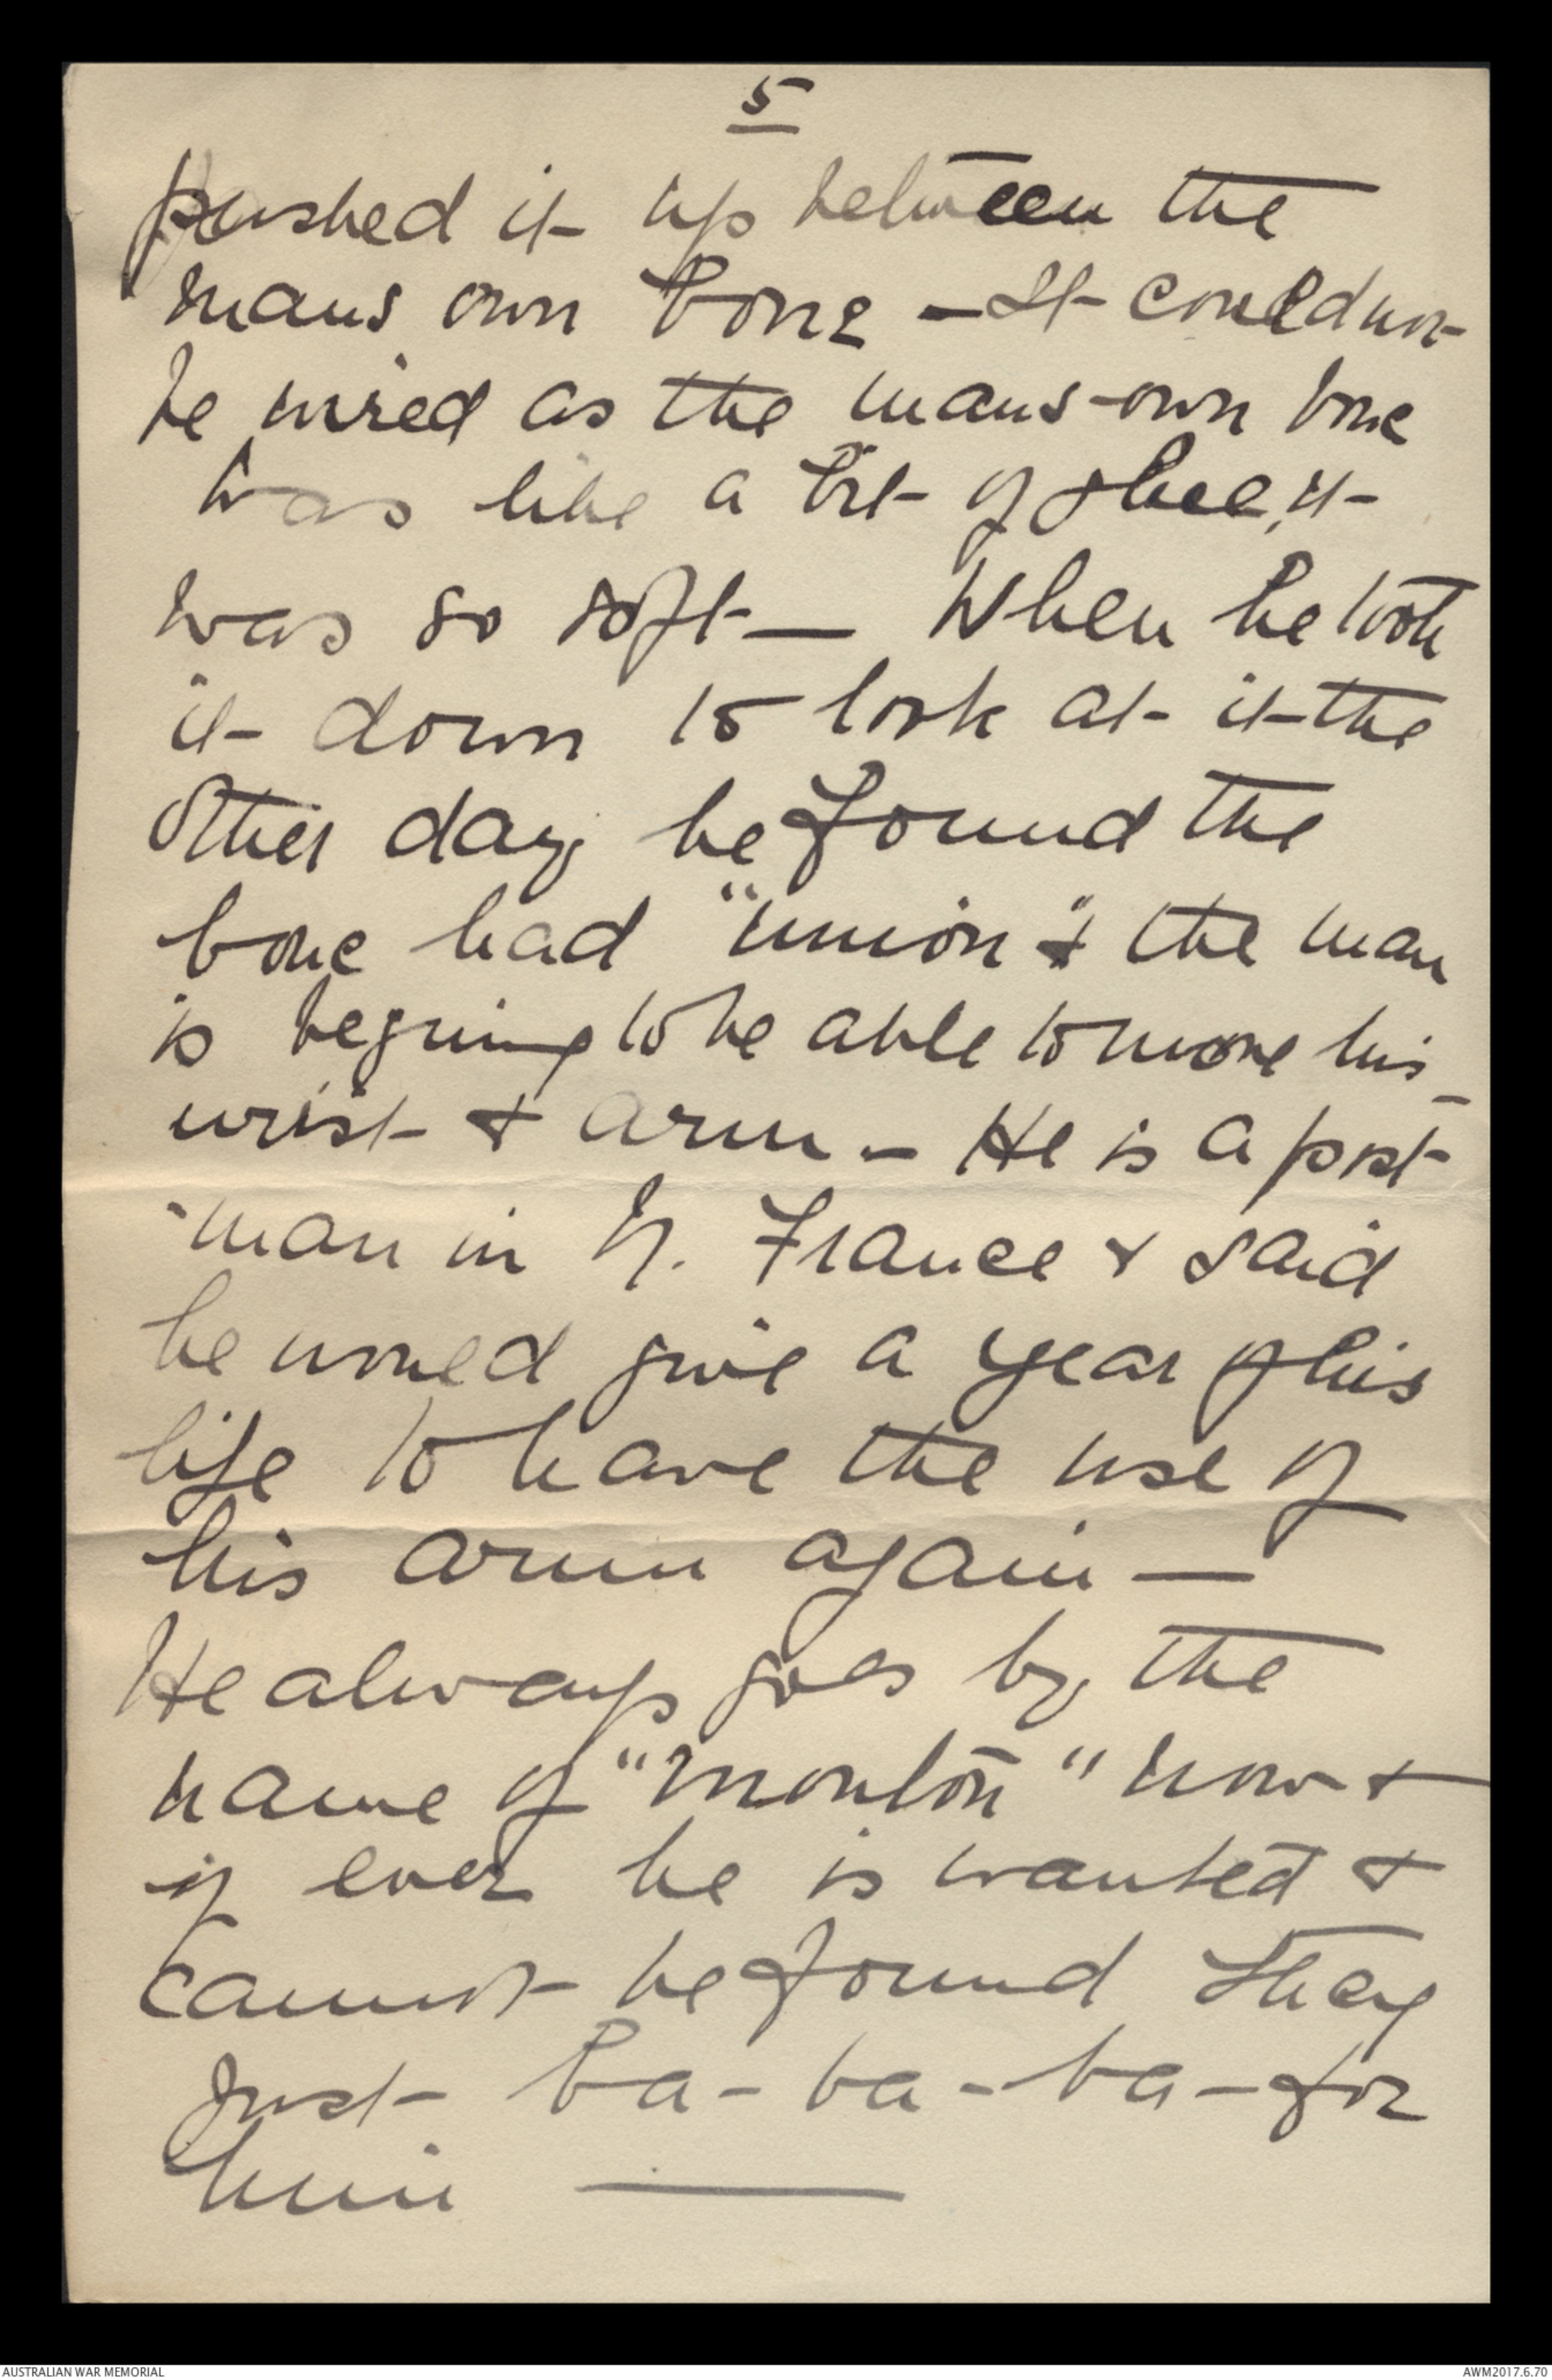 5
pushed it up between the
mans own bone - It could not
be wired as the mans own bone
was like a bit of glue, it
was so soft — When he took
it down to look at it the
other day he found the
bone had "union" & the man
is begining to be able to move his
wrist & arm - He is a post
-man in N. France & said
he would give a year of his
life to have the use of
his arm again —
He always goes by the
name of "Mouton" now &
if ever he is wanted &
cannot be found they
just ba - ba - ba - for
him —
AUSTRALIAN WAR MEMORIAL
AWM2017.6.70